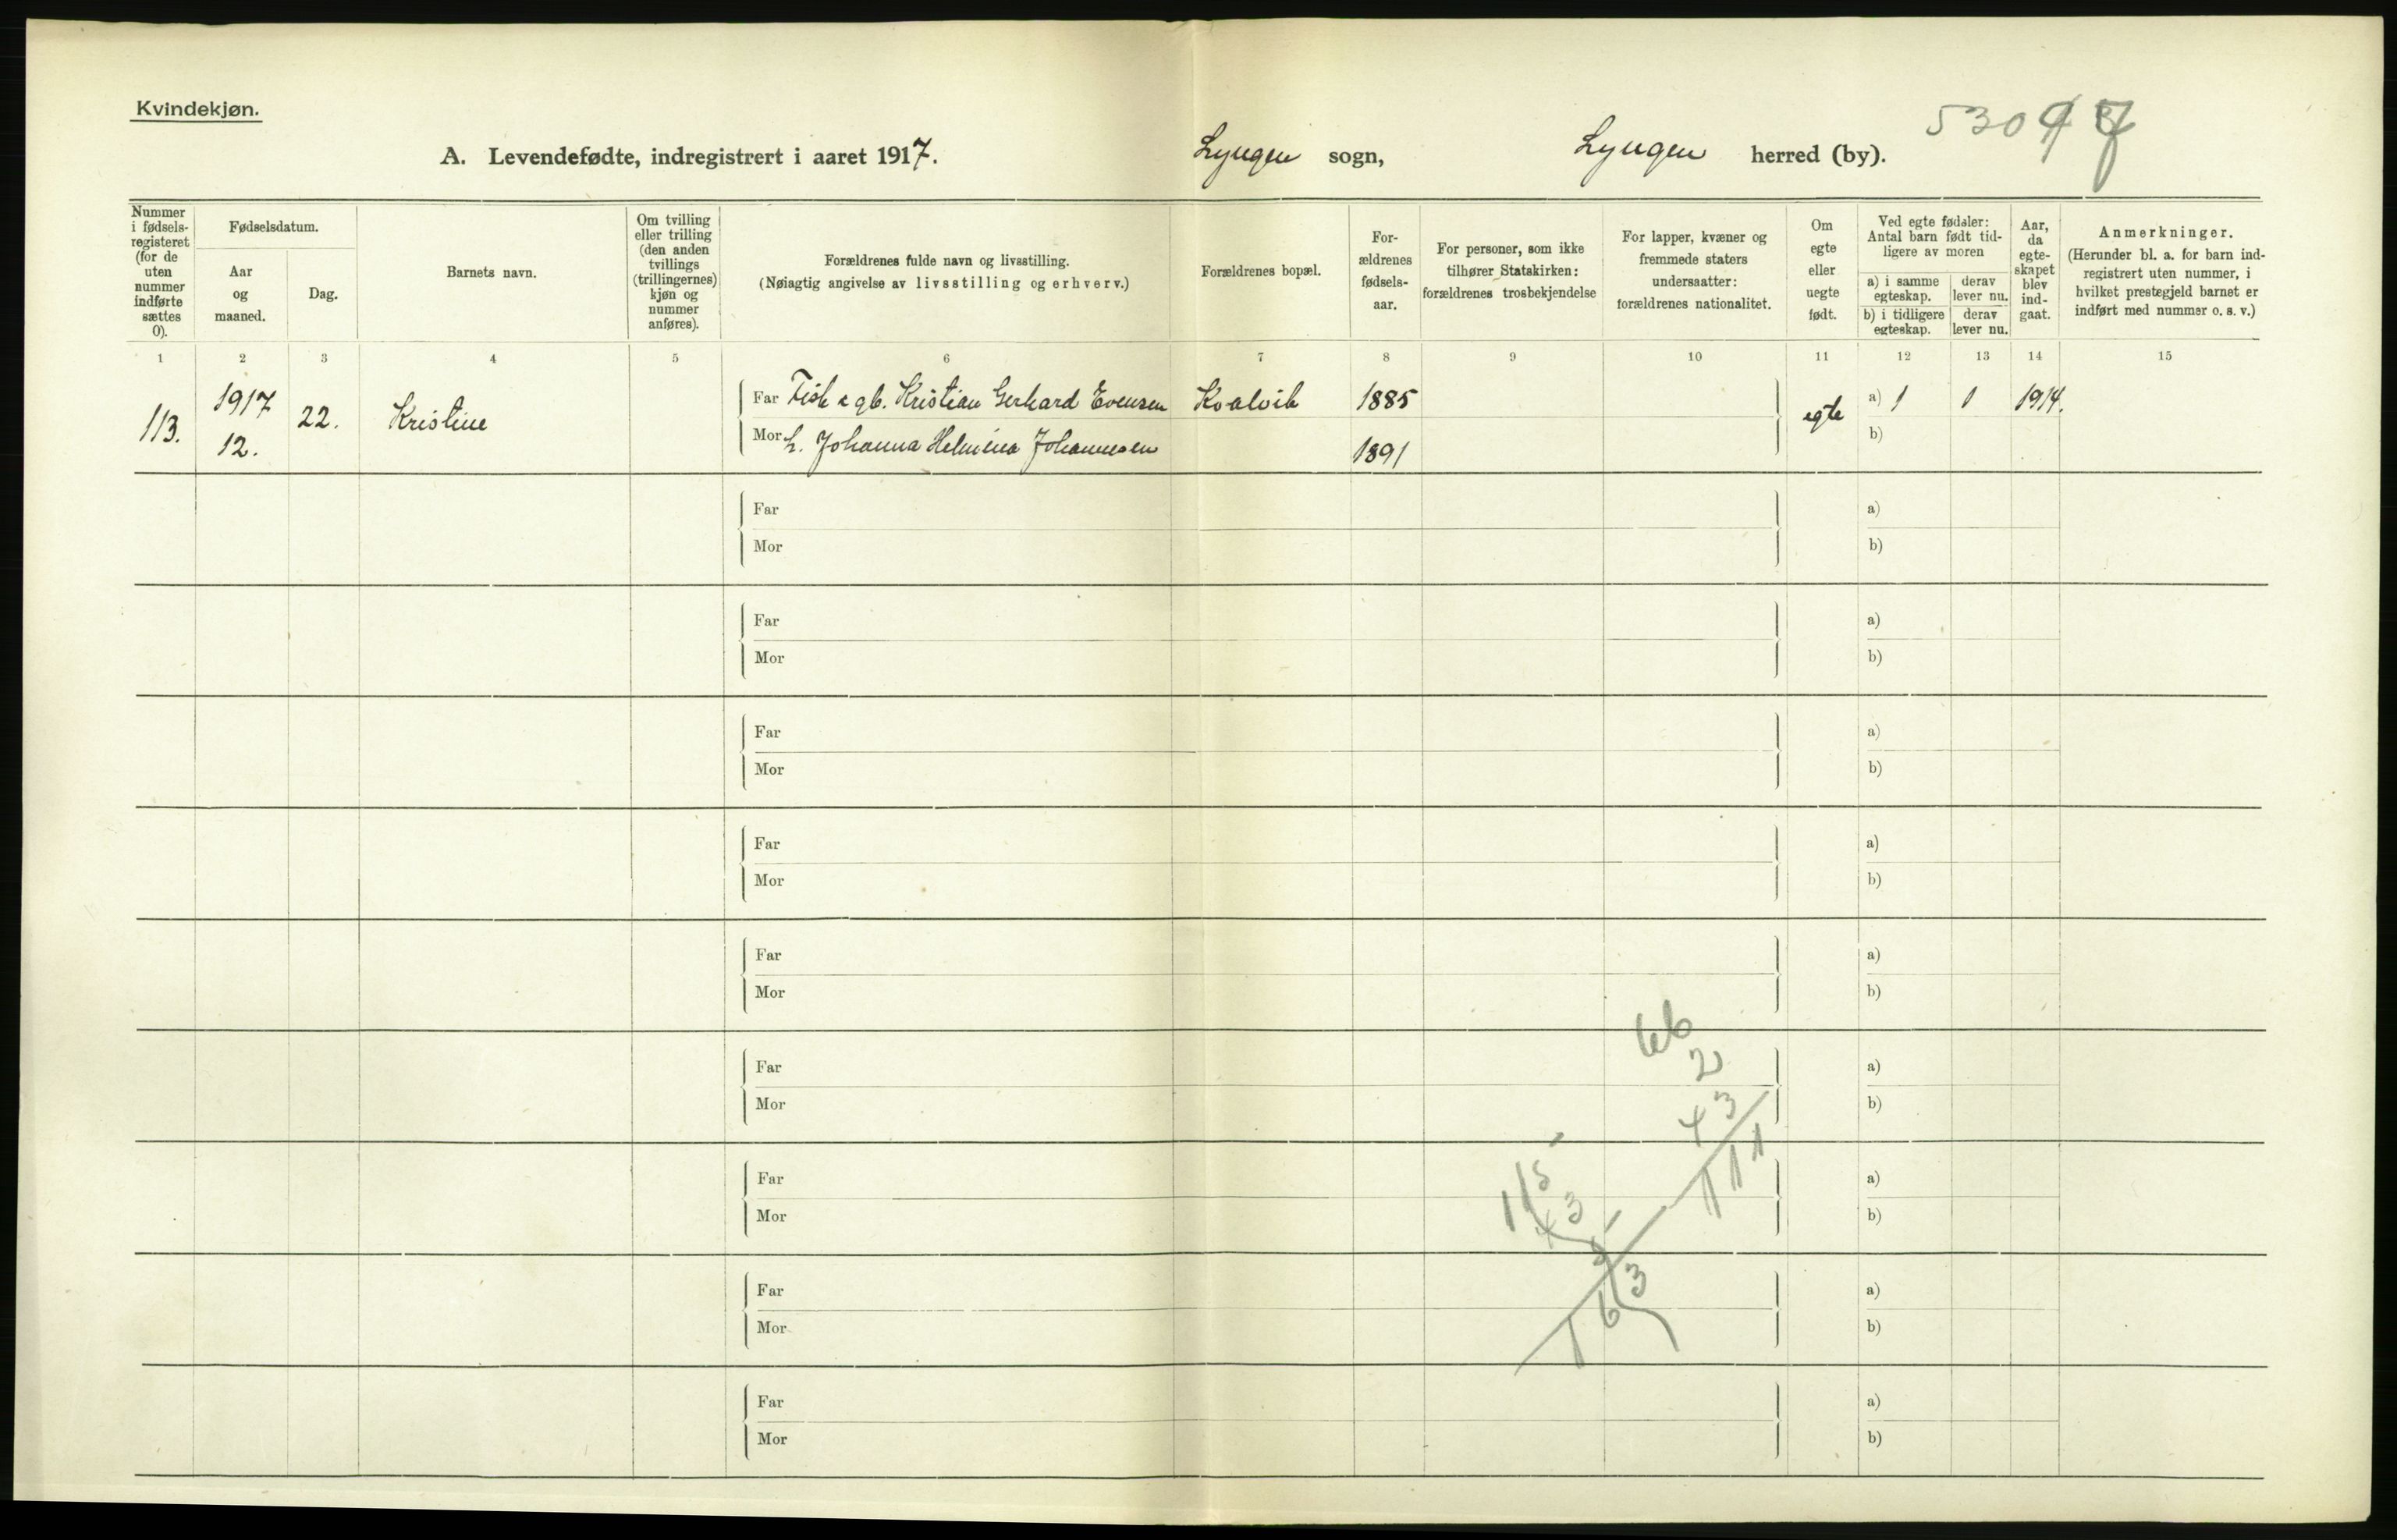 Kvindekjøn.
A. Levendefødte, indregistrert i aaret 1917.
Lyngen sogn,
Lyngen herred (by).
Nummer
i fødsels-
registeret
(for de
uten
nummer
indførte
sættes
0).
Fødselsdatum.
Aar
og
maaned.
Dag.
Barnets navn.
Om tvilling
eller trilling
(den anden
tvillings
(trillingernes)
kjøn og
nummer
anføres).
Forældrenes fulde navn og livsstilling.
(Nøiagtig angivelse av livsstilling og erhverv.)
Forældrenes bopæl.
For-
ældrenes
fødsels-
aar.
For personer, som ikke
tilhører Statskirken:
forældrenes trosbekjendelse
For lapper, kvæner og
fremmede staters
undersaatter:
forældrenes nationalitet.
Om
egte
eller
uegte
født.
Ved egte fødsler:
Antal barn født tid-
ligere av moren
a) i samme
egteskap.
derav
lever nu.
b) i tidligere
egteskap.
derav
lever nu.
Aar,
da
egte-
skapet
blev
ind-
gaat.
Anmerkninger.
(Herunder bl. a. for barn ind-
registrert uten nummer, i
hvilket prestegjeld barnet er
indført med nummer o. s. v.)
1 2 3 4 5 6 7 8 9 10 11 12 13 14 15
113. 1917 12. 22. Kristine
Far Fisk & gb. Kristian Gerhard Evensen Kvalvik 1885 egte a) 1 1 1914.
Mor h. Johanna Helmina Johannesen 1891 b)
Far a)
Mor b)
Far a)
Mor b)
Far a)
Mor b)
Far a)
Mor b)
Far a)
Mor b)
Far a)
Mor b)
Far a)
Mor b)
Far a)
Mor b)
Far a)
Mor b)
66
2
43
111
115
43
5
163